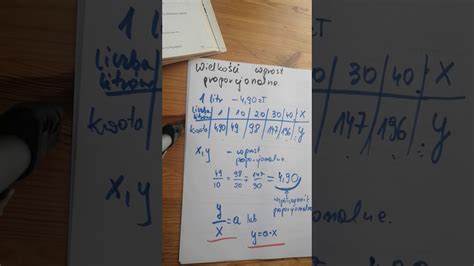 Wielkości wprost
proporcjonalne.
1 litr – 4,90 zł
liczba litrów 1 10 20 30 40 x
kwota 4,90 49 98 147 196 y
x, y – wprost
proporcjonalne
49/10 = 98/20 = 147/30 = 4,90
współczynnik
proporcjonalności
y/x = a lub
y = a·x